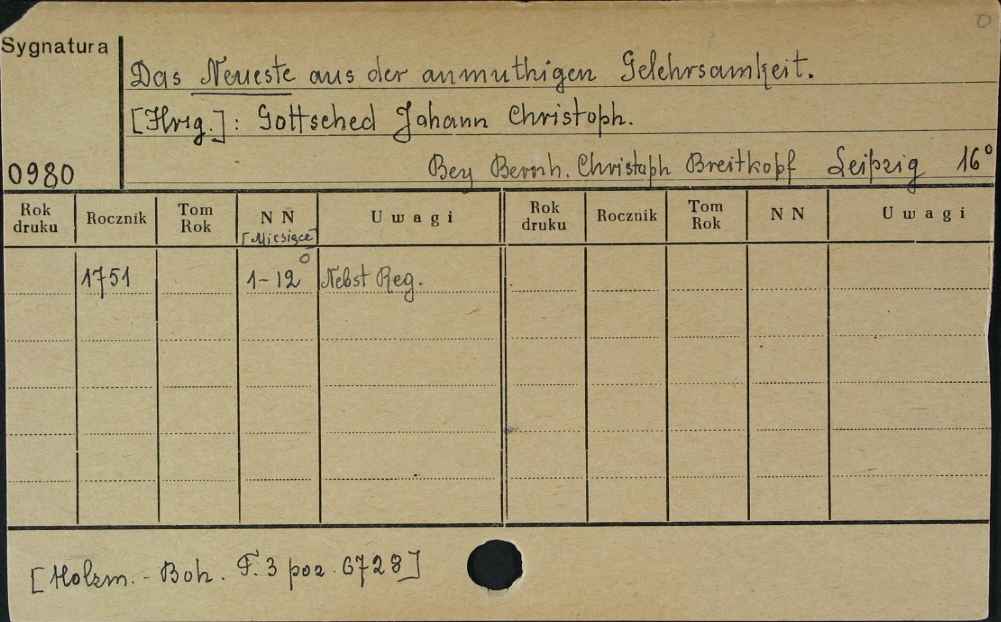 0
Sygnatura
Das Neueste aus der anmuthigen Gelehrsamkeit.
[Hrsg.]: Gottsched Johann Christoph.
0980
Bey Bernh. Christoph Breitkopf Leipzig 16°
Rok druku Rocznik Tom Rok N N [Miesiące] Uwagi Rok druku Rocznik Tom Rok N N Uwagi
1751 1-12° Nebst Reg.
[Holzm. - Boh. F. 3 poz. 6728]